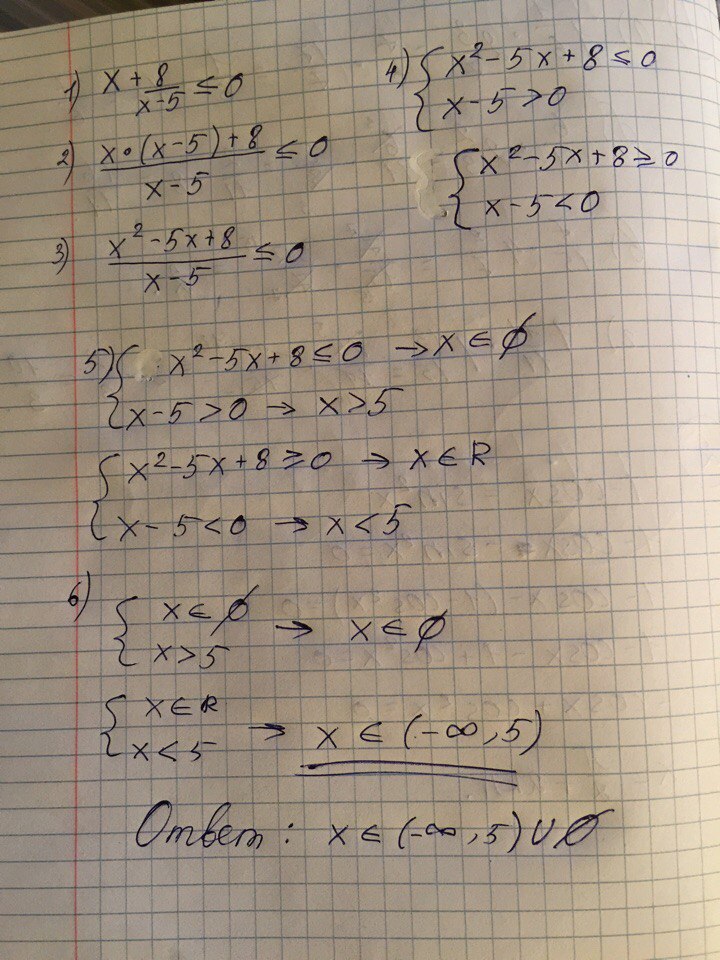 1) x + 8/(x-5) ≤ 0
2) (x•(x-5)+8)/(x-5) ≤ 0
3) (x²-5x+8)/(x-5) ≤ 0
4) { x²-5x+8 ≤ 0
x-5 > 0
{ x²-5x+8 ≥ 0
x-5 < 0
5) { x²-5x+8 ≤ 0 → x ∈ ∅
x-5 > 0 → x > 5
{ x²-5x+8 ≥ 0 → x ∈ R
x-5 < 0 → x < 5
6) { x ∈ ∅
x > 5 → x ∈ ∅
{ x ∈ R
x < 5 → x ∈ (-∞, 5)
Ответ: x ∈ (-∞, 5) ∪ ∅